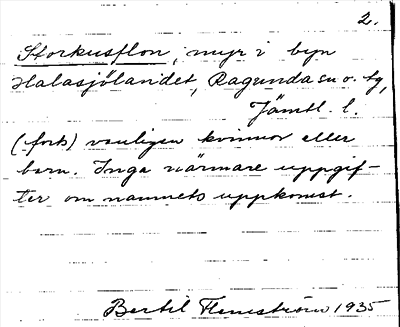 2.
Storkusflon, myr i byn
Halasjölandet, Ragunda sn o. tg,
Jämtl. l.
(forts) vanligen kvinnor eller
barn. Inga närmare uppgif-
ter om namnets uppkomst.
Bertil Flemström 1935